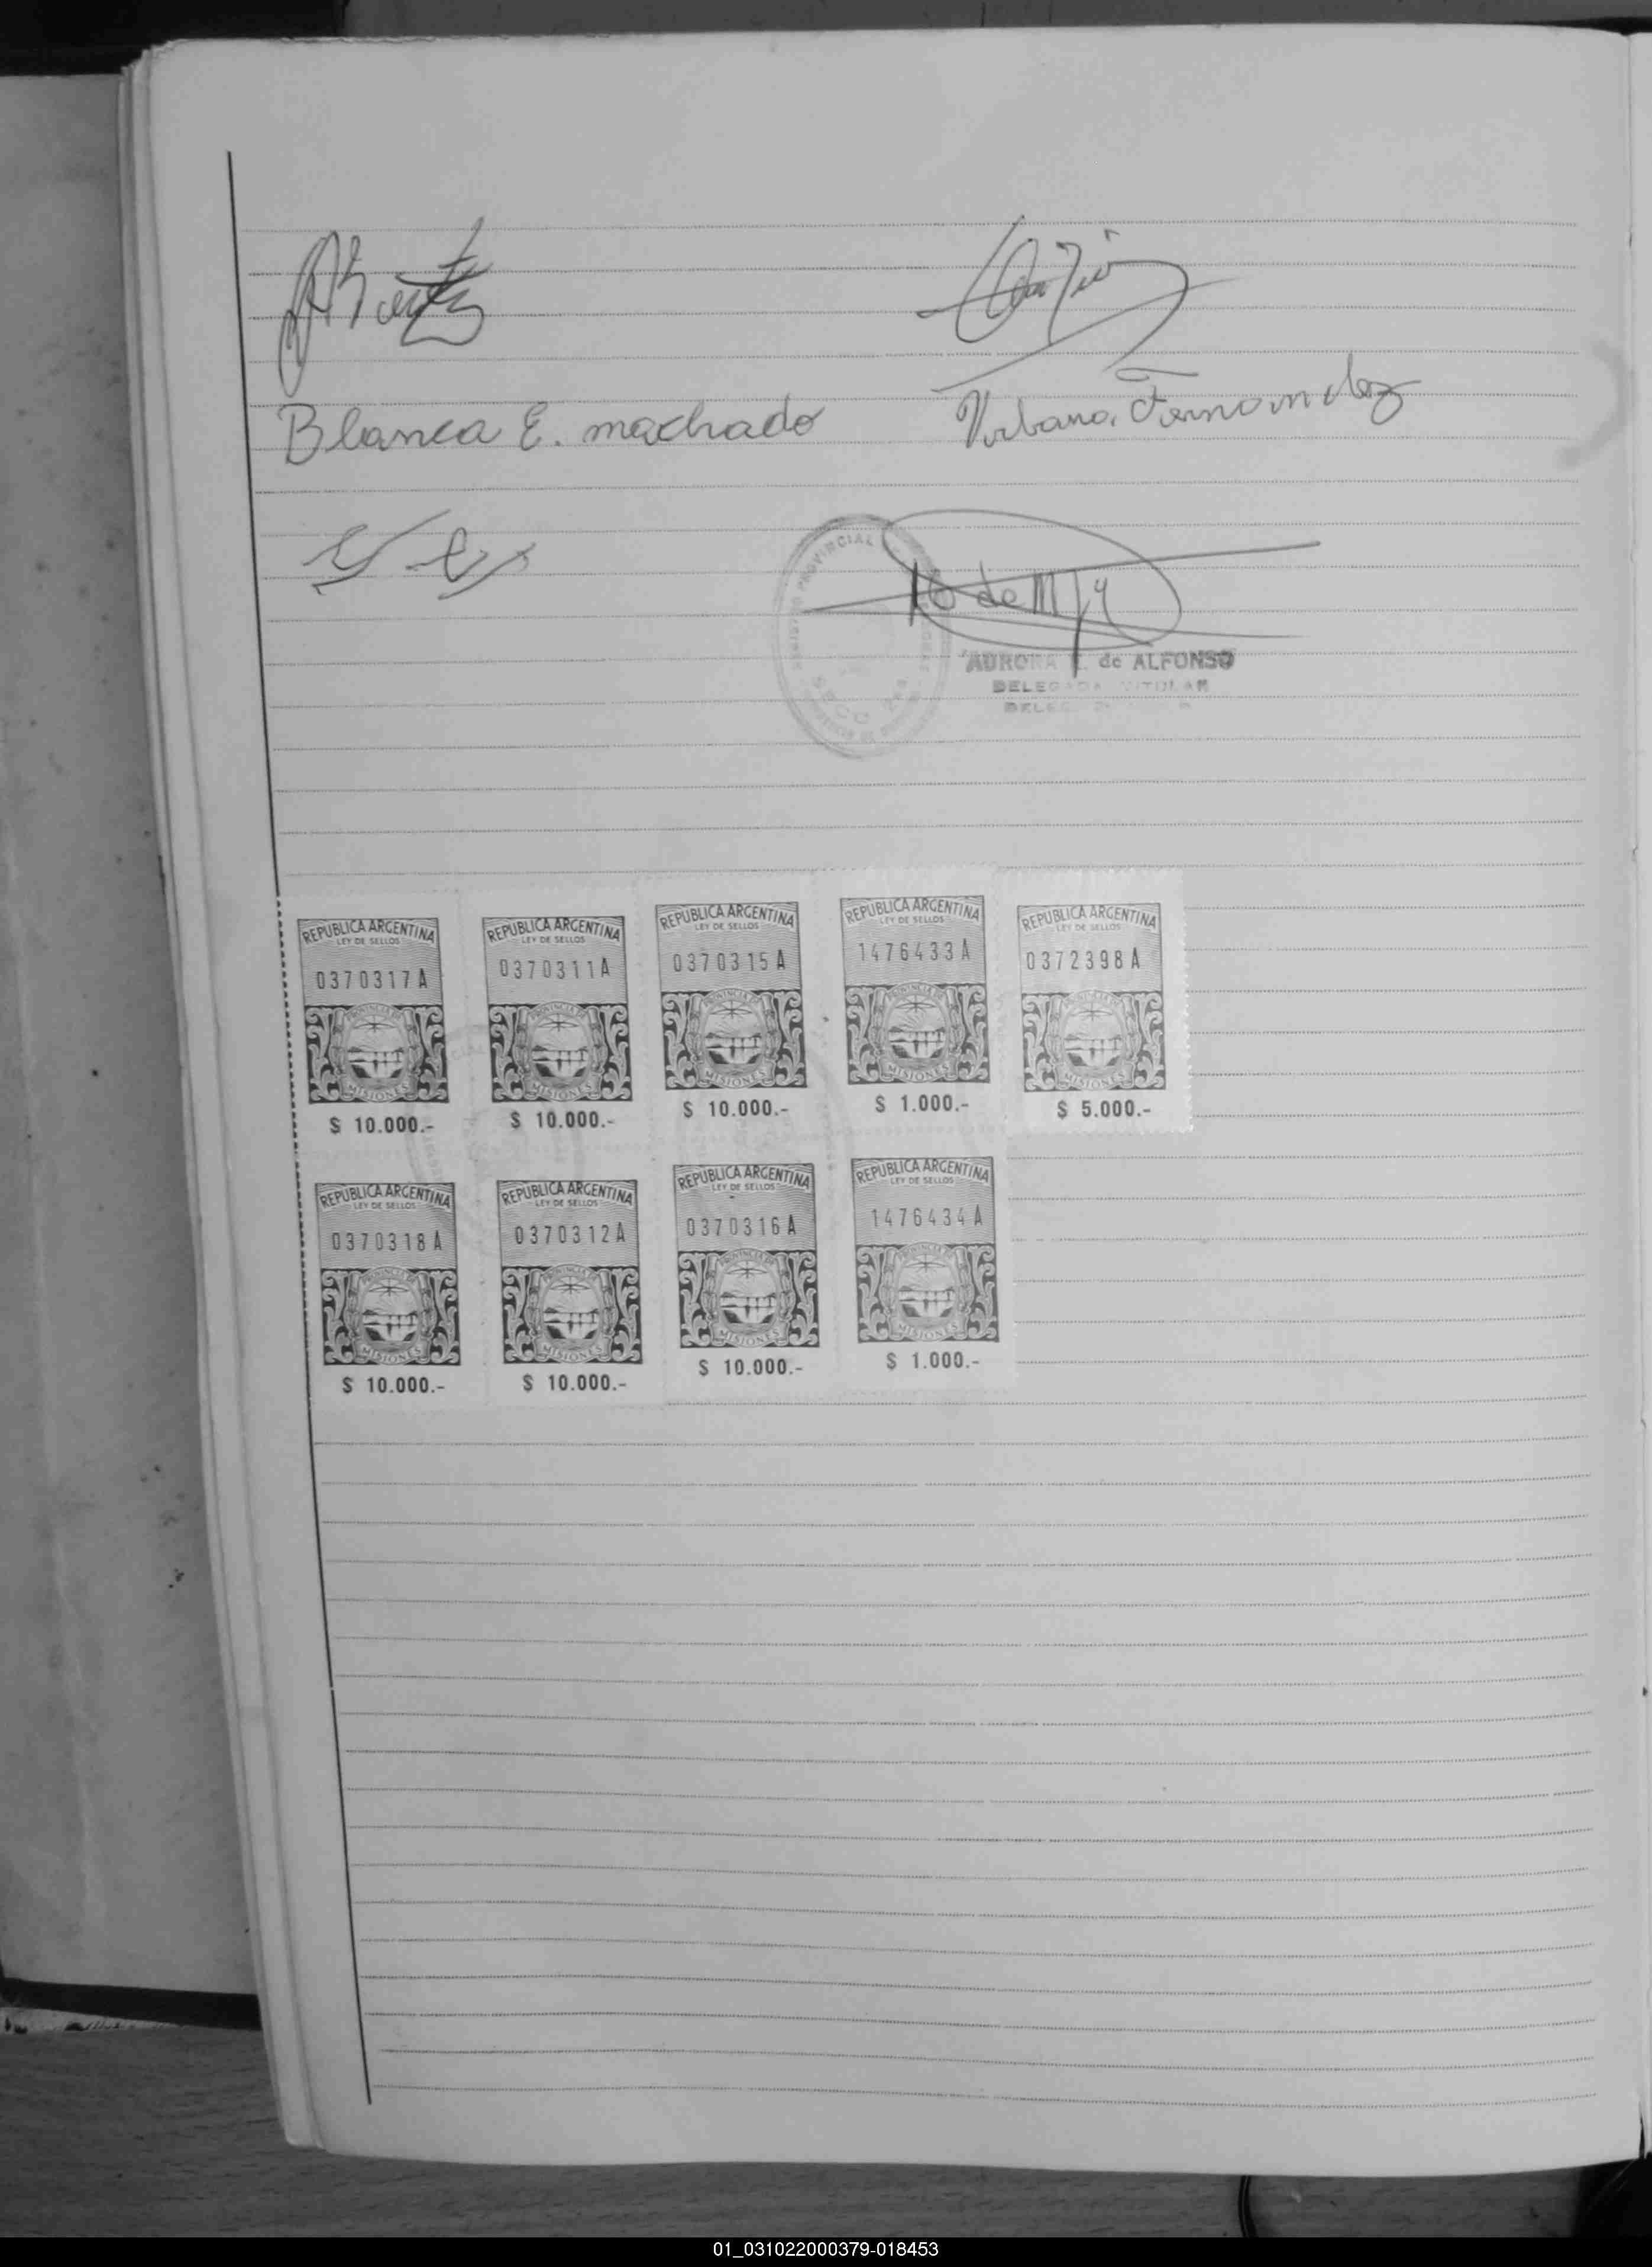 Blanca E. machado
Urbana Fernandez
PROVINCIAL
SECC
AURORA de ALFONSO
DELEGADA TITULAR
REPUBLICA ARGENTINA REPUBLICA ARGENTINA REPUBLICA ARGENTINA REPUBLICA ARGENTINA REPUBLICA ARGENTINA
LEY DE SELLOS LEY DE SELLOS LEY DE SELLOS LEY DE SELLOS LEY DE SELLOS
0370317A 0370311A 0370315A 1476433A 0372398A
PROVINCIA DE PROVINCIA DE PROVINCIA DE PROVINCIA DE PROVINCIA DE
MISIONES MISIONES MISIONES MISIONES MISIONES
$ 10.000.- $ 10.000.- $ 10.000.- $ 1.000.- $ 5.000.-
REPUBLICA ARGENTINA REPUBLICA ARGENTINA REPUBLICA ARGENTINA REPUBLICA ARGENTINA
LEY DE SELLOS LEY DE SELLOS LEY DE SELLOS LEY DE SELLOS
0370318A 0370312A 0370316A 1476434A
PROVINCIA DE PROVINCIA DE PROVINCIA DE PROVINCIA DE
MISIONES MISIONES MISIONES MISIONES
$ 10.000.- $ 10.000.- $ 10.000.- $ 1.000.-
01_031022000379-018453